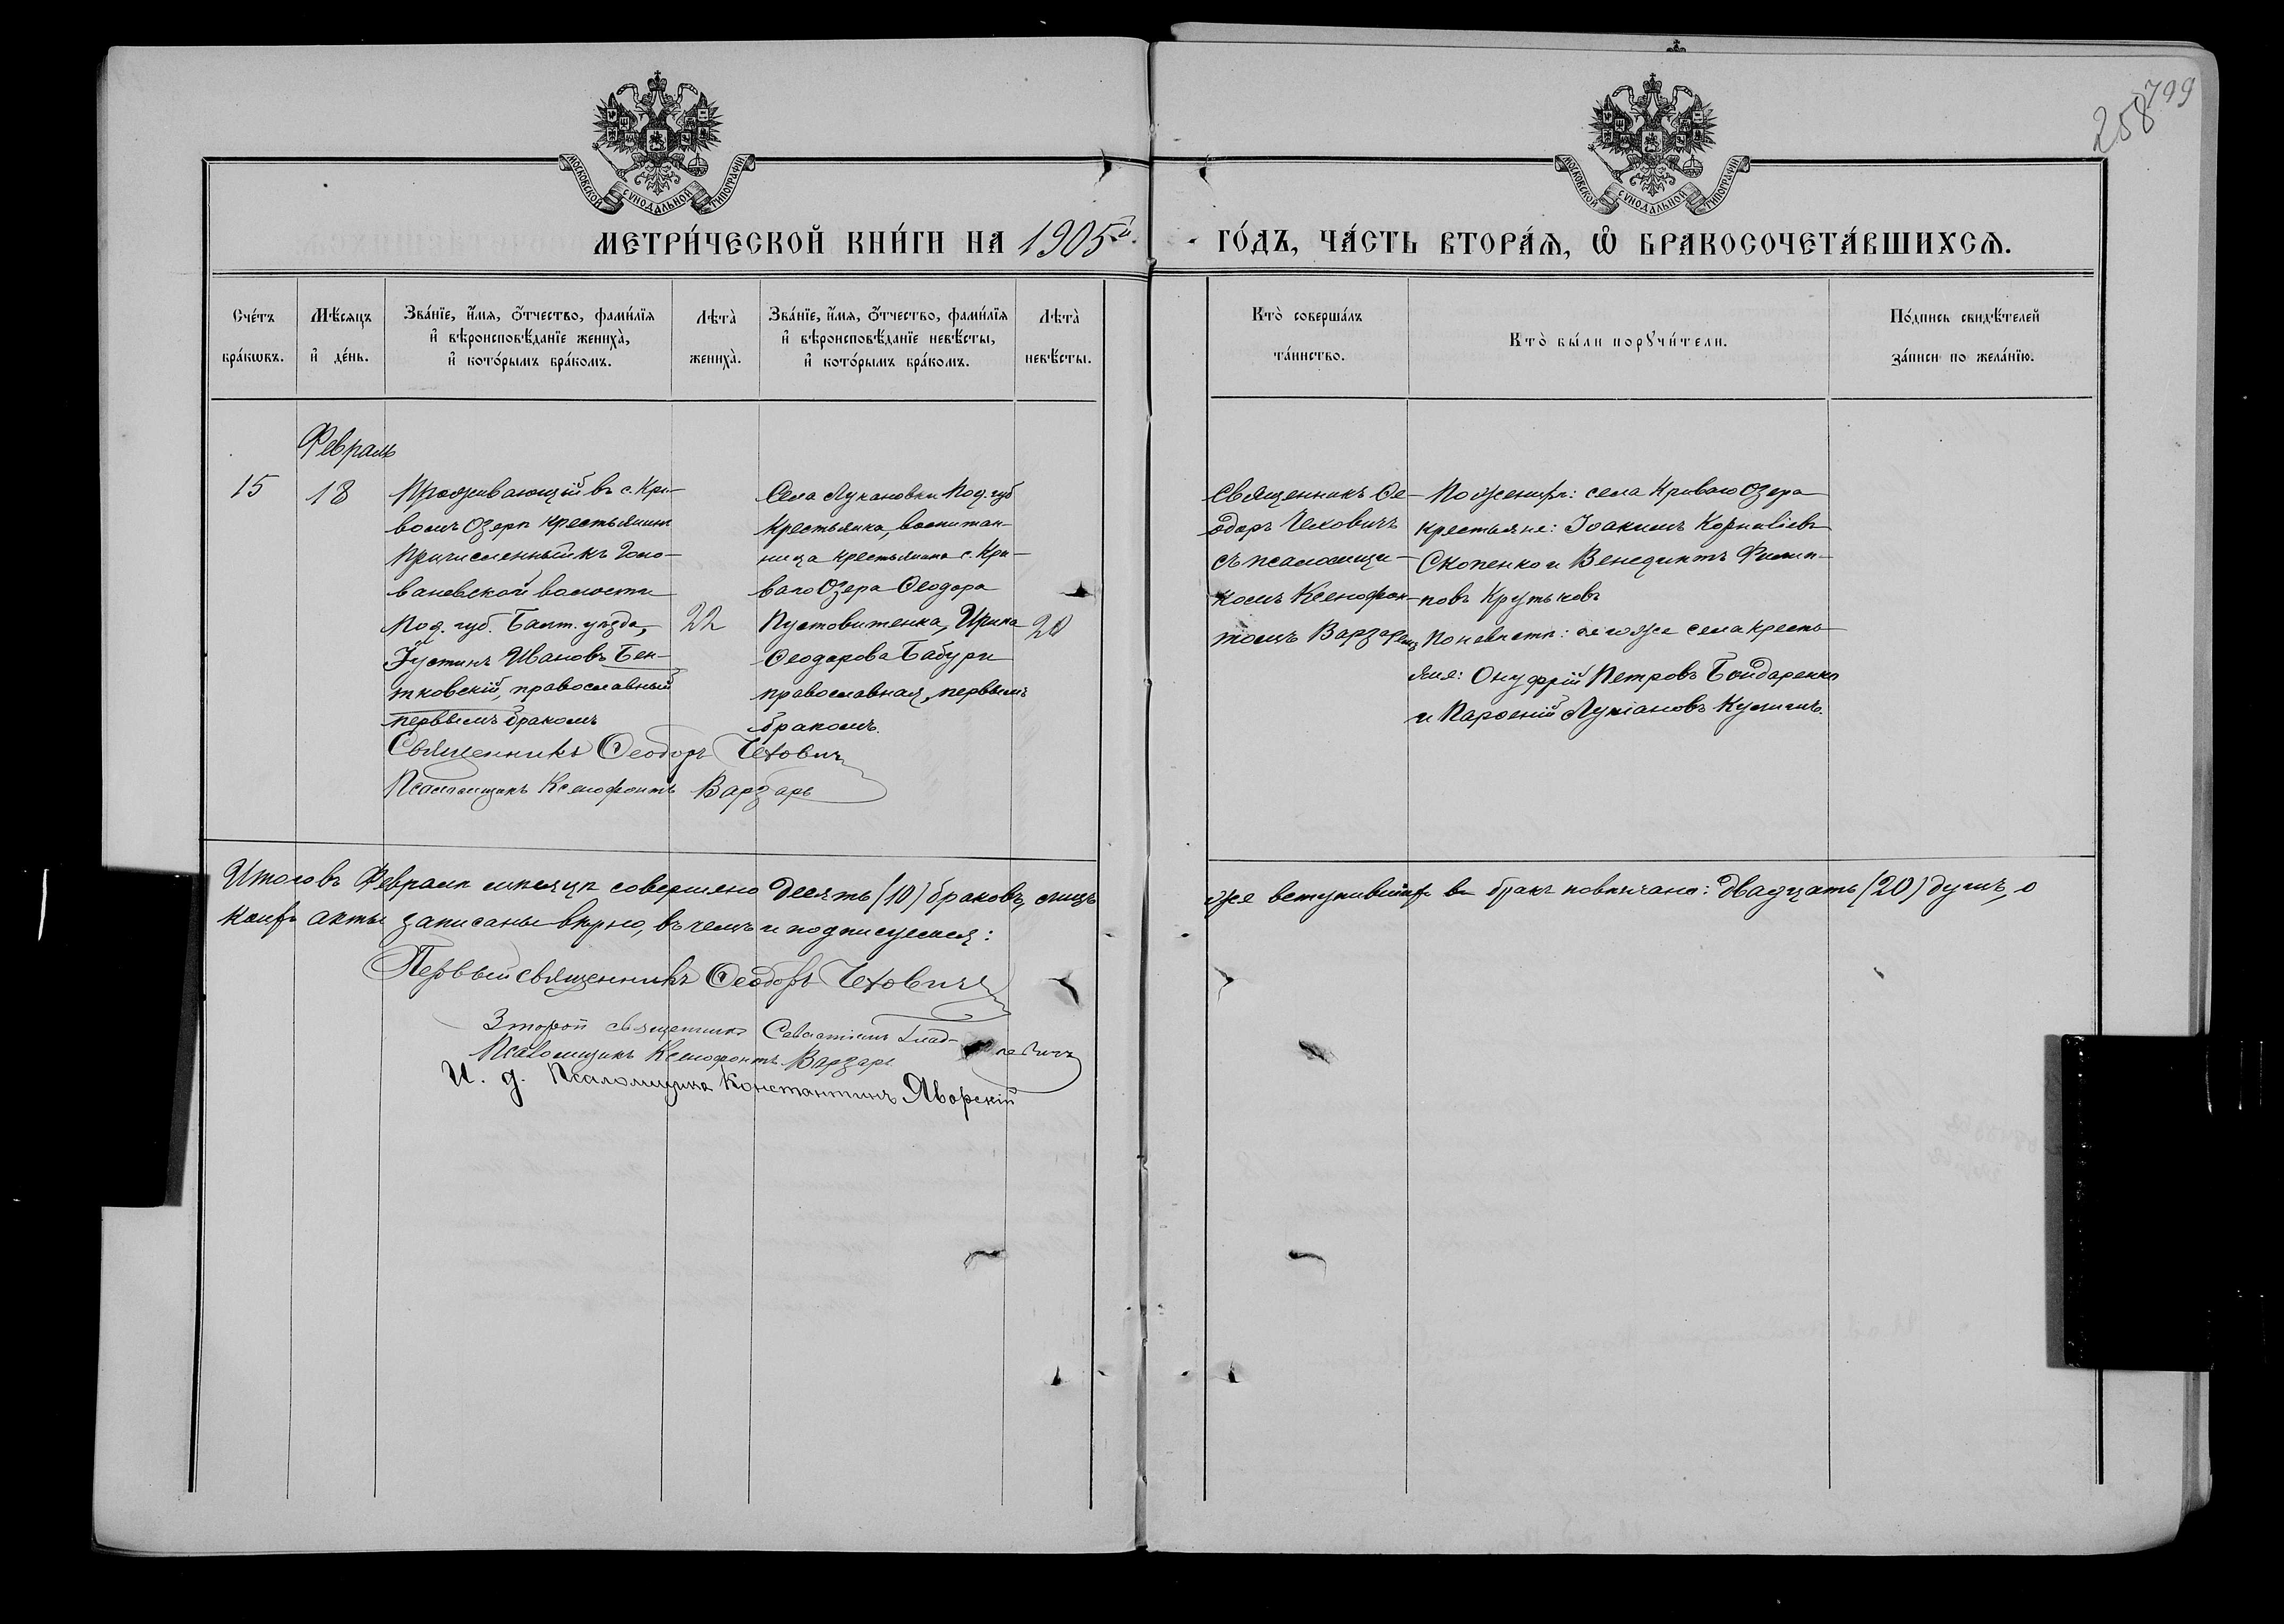 258 799
МОСКОВСКОЙ СѴНОДАЛЬНОЙ ТИПОГРАФІИ
МОСКОВСКОЙ СѴНОДАЛЬНОЙ ТИПОГРАФІИ
МЕТРИ́ЧЕСКОЙ КНИ́ГИ НА 1905й
ГО́ДЪ, ЧА́СТЬ ВТОРА́Ѧ, Ѡ БРАКОСОЧЕТА́ВШИХСѦ.
Сче́тъ
бра́кѡвъ.
Мѣ́сяцъ
и҆ де́нь.
Зва́нїе, и҆́мя, ѻ҆́тчество, фами́лїя
и҆ вѣроисповѣ́данїе жениха̀,
и҆ кото́рымъ бра́комъ.
Лѣта̀
жениха̀.
Зва́нїе, и҆́мя, ѻ҆́тчество, фами́лїя
и҆ вѣроисповѣ́данїе невѣ́сты,
и҆ кото́рымъ бра́комъ.
Лѣта̀
невѣ́сты.
Кто̀ соверша́лъ
та́инство.
Кто̀ бы́ли порꙋчи́тели.
По́дпись свидѣ́телей
за́писи по жела́нїю.
Февраль
15
18
Проживающій въ с. Кри-
вомъ Озерѣ крестьянинъ
Причисленный къ Голо-
ваневской волости
Под. губ. Балт. уѣзда,
Іустинъ Ивановъ Бен-
тковскій, православный
первымъ бракомъ
22
Села Лукановки Под. губ
крестьянка, воспитан-
ница крестьянина с. Кри-
ваго Озера Ѳеодора
Пустовитенка, Ирина
Ѳеодорова Бабури
православная, первымъ
бракомъ.
20
Священникъ Ѳеодоръ Чехович
Псаломщикъ Ксенофонтъ Варзарь
Священникъ Ѳе-
одоръ Чеховичъ
съ псаломщи-
комъ Ксенофон-
томъ Варзаремъ
По женихѣ: села Криваго Озера
крестьяне: Іоакимъ Корниліевъ
Скопенко и Венедиктъ Филип-
повъ Крутьковъ
По невѣстѣ: того же села кресть-
яне: Онуфрій Петровъ Бондаренко
и Парѳеній Лукіановъ Куличъ.
Итого въ Февралѣ мѣсяцѣ совершено десять (10) браковъ, лицъ
же вступившихъ въ бракъ повѣнчано: двадцать (20) душъ, о
коихъ акты записаны вѣрно, въ чемъ и подписуемся:
Первый священникъ Ѳеодоръ Чеховичъ
Второй священникъ Севастіанъ
Псаломщикъ Ксенофонтъ Варзарь
И. д. Псаломщика Константинъ Яворскій